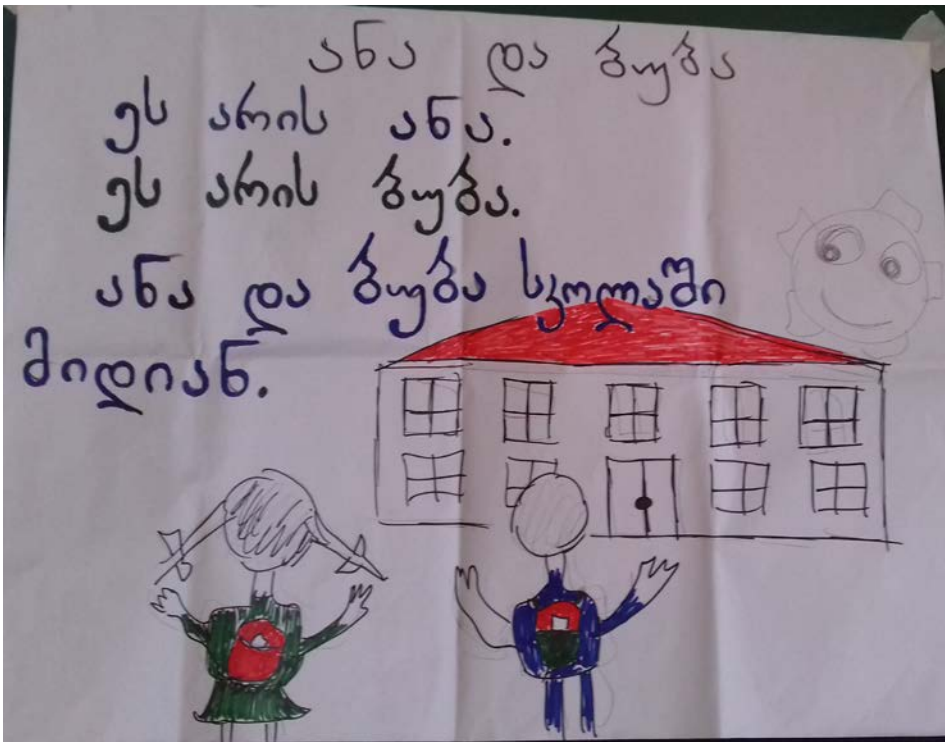 ანა და ბუბა
ეს არის ანა.
ეს არის ბუბა.
ანა და ბუბა სკოლაში
მიდიან.